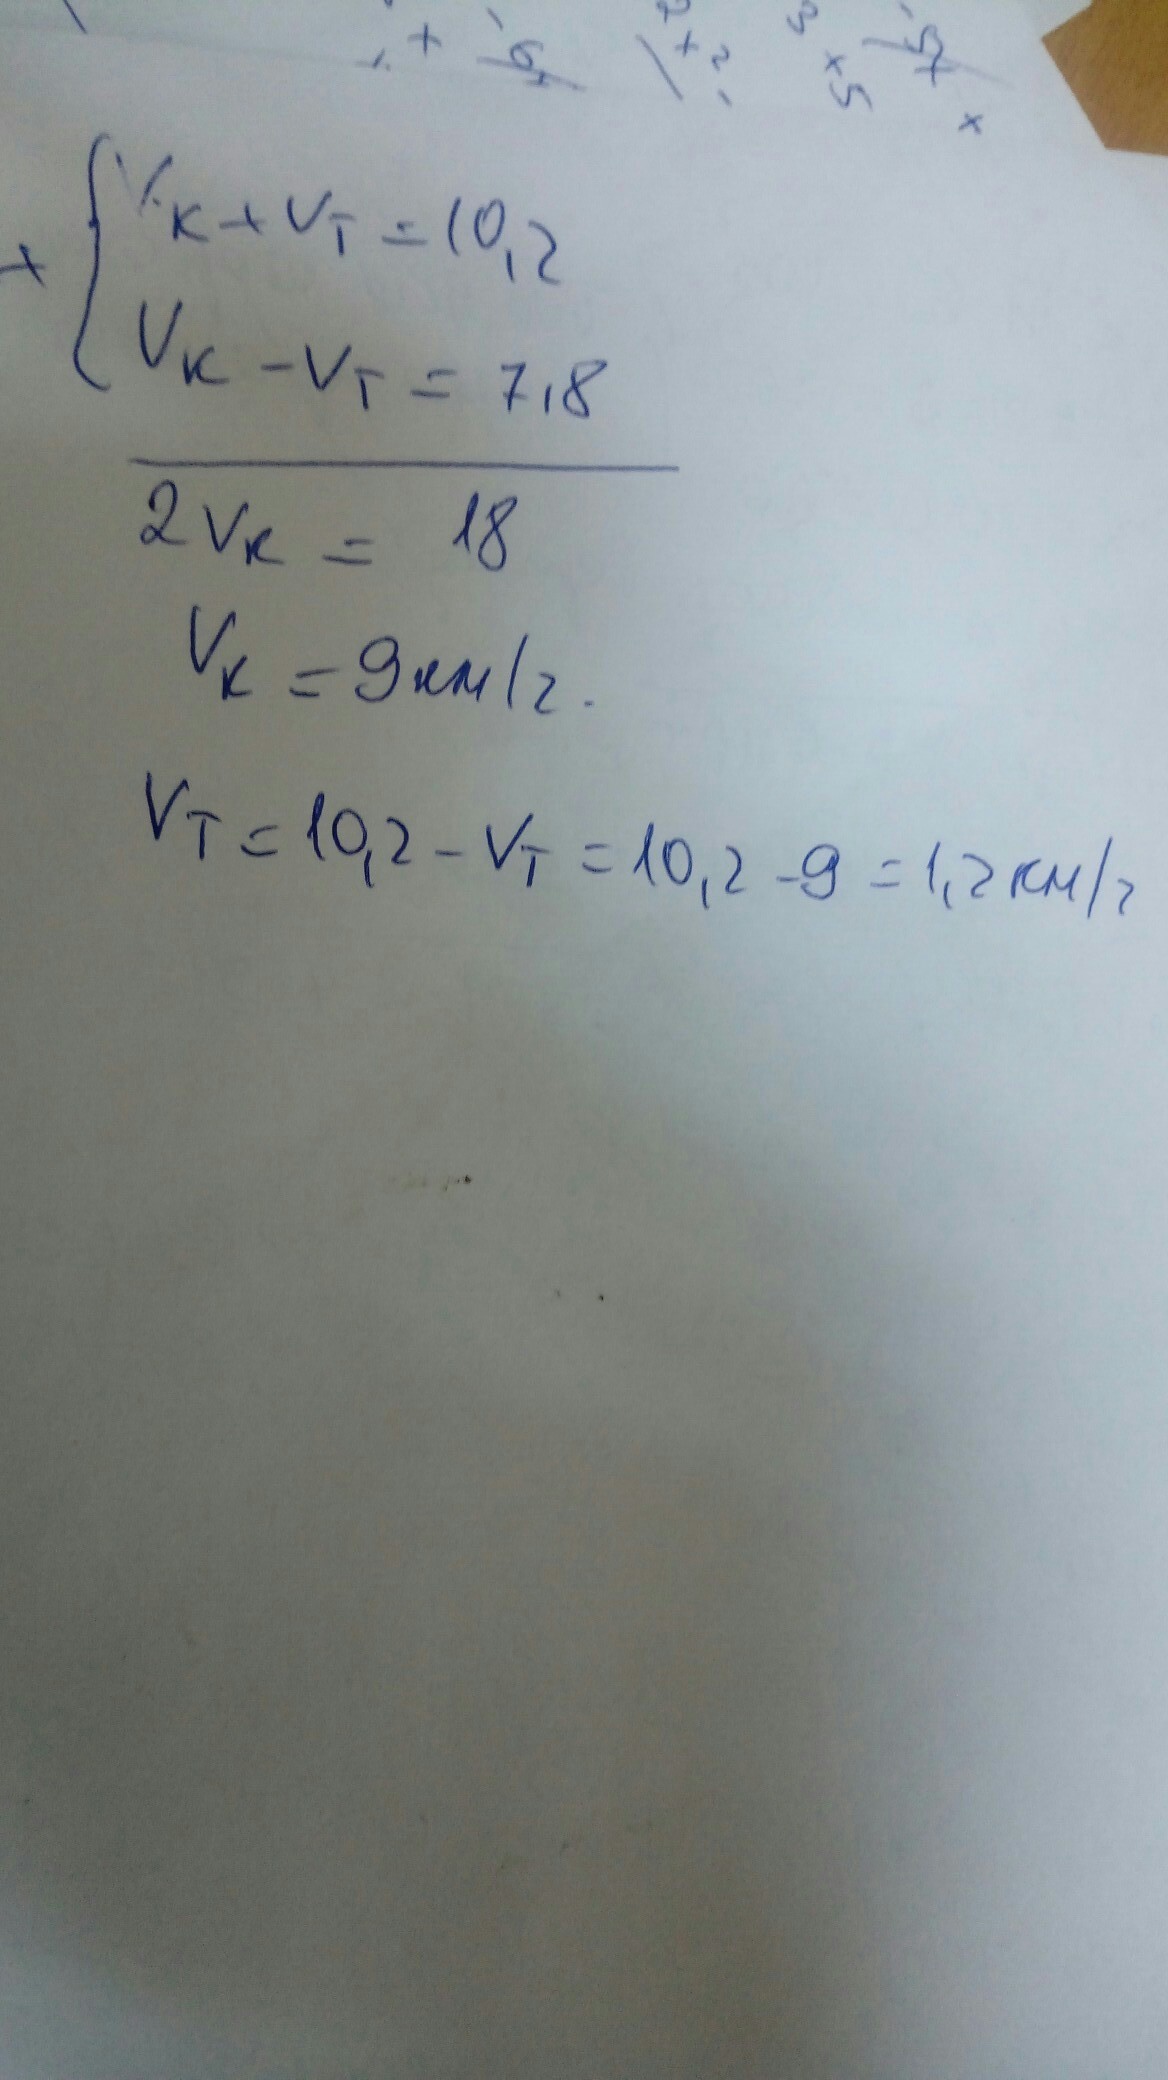 +
Vк + Vт = 10,2
Vк - Vт = 7,8
2Vк = 18
Vк = 9 км/г.
Vт = 10,2 - Vт = 10,2 - 9 = 1,2 км/г